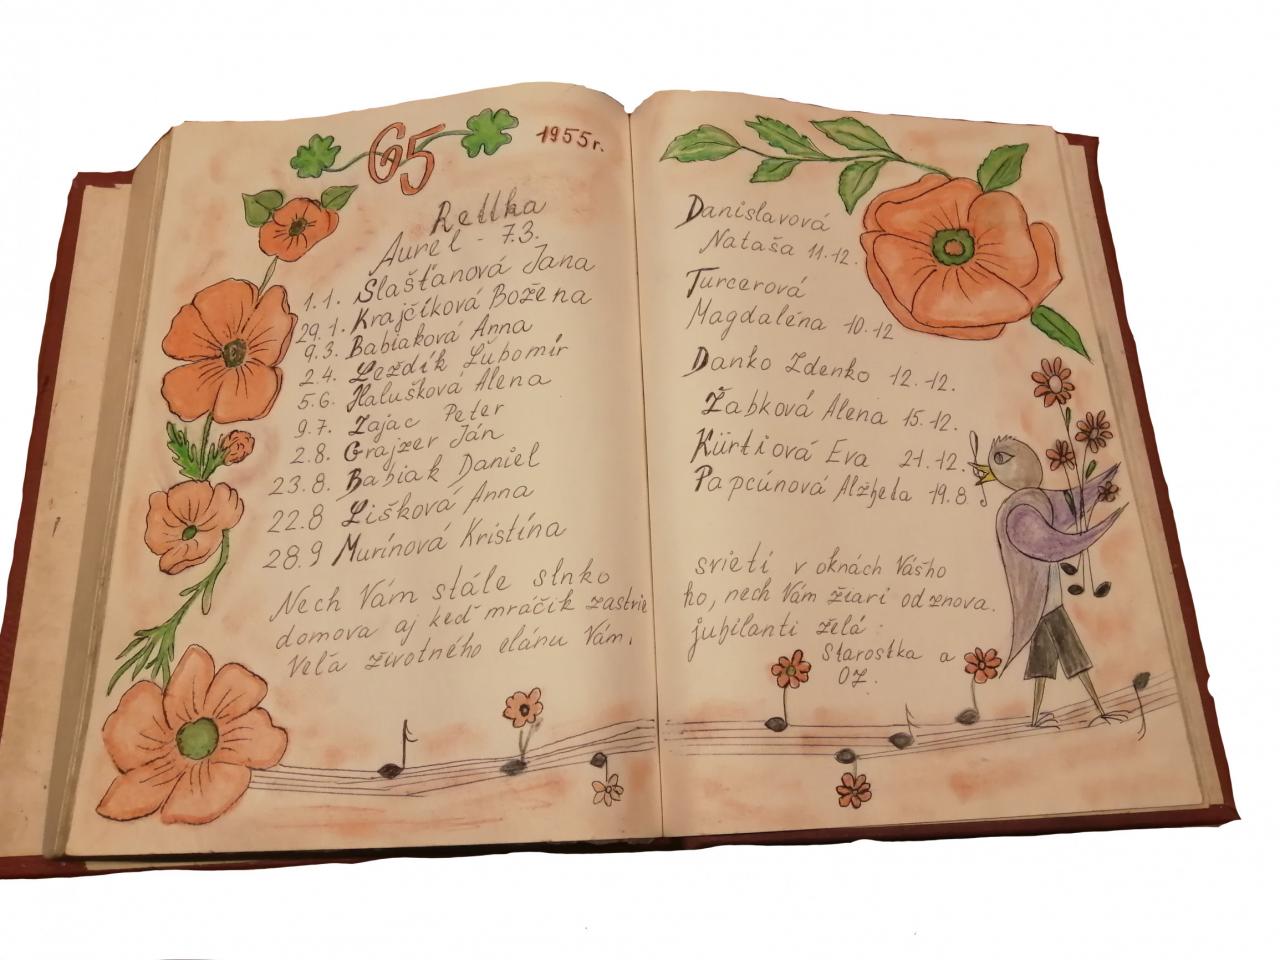 65 1955r.
Rettka
Aurel - 7.3.
1.1. Slašťanová Jana
29.1. Krajčíková Božena
9.3. Babiaková Anna
2.4. Leždík Ľubomír
5.6. Halušková Alena
9.7. Zajac Peter
2.8. Grajzer Ján
23.8. Babiak Daniel
22.8 Lišková Anna
28.9 Murínová Kristína
Nech Vám stále slnko
domova aj keď mráčik zastrie
Veľa životného elánu Vám,
Danislavová
Nataša 11.12.
Turcerová
Magdaléna 10.12
Danko Zdenko 12.12.
Žabková Alena 15.12.
Kürtiová Eva 21.12.
Papcúnová Alžbeta 19.8
svieti v oknách Vášho
ho, nech Vám žiari odznova.
jubilanti želá:
Starostka a
OZ.